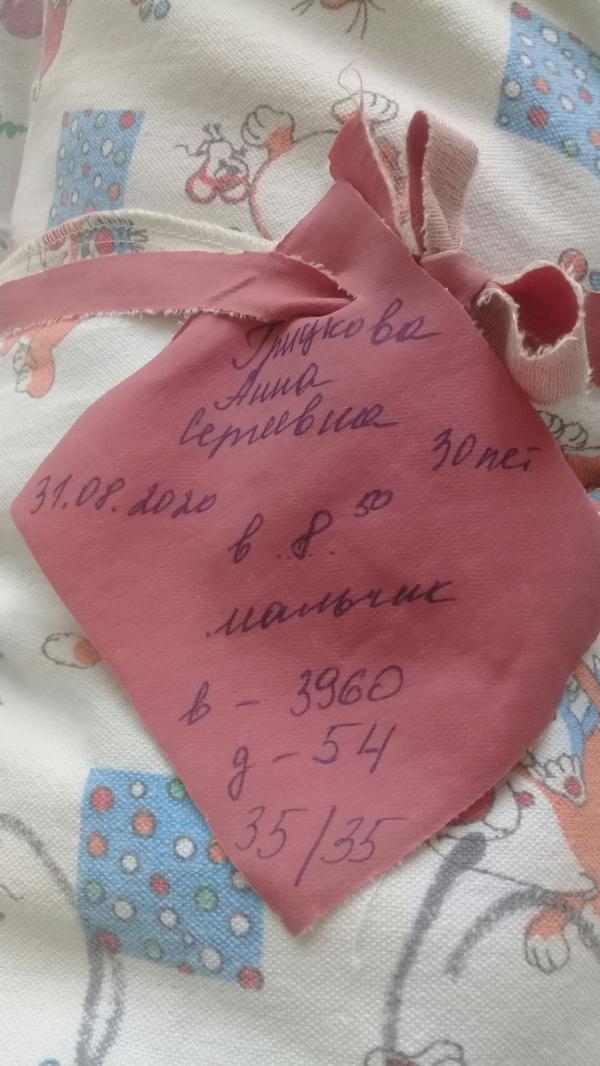 Грицкова
Анна
Сергеевна
30 лет
31.08.2020
в 8.50
мальчик
в - 3960
д - 54
35/35